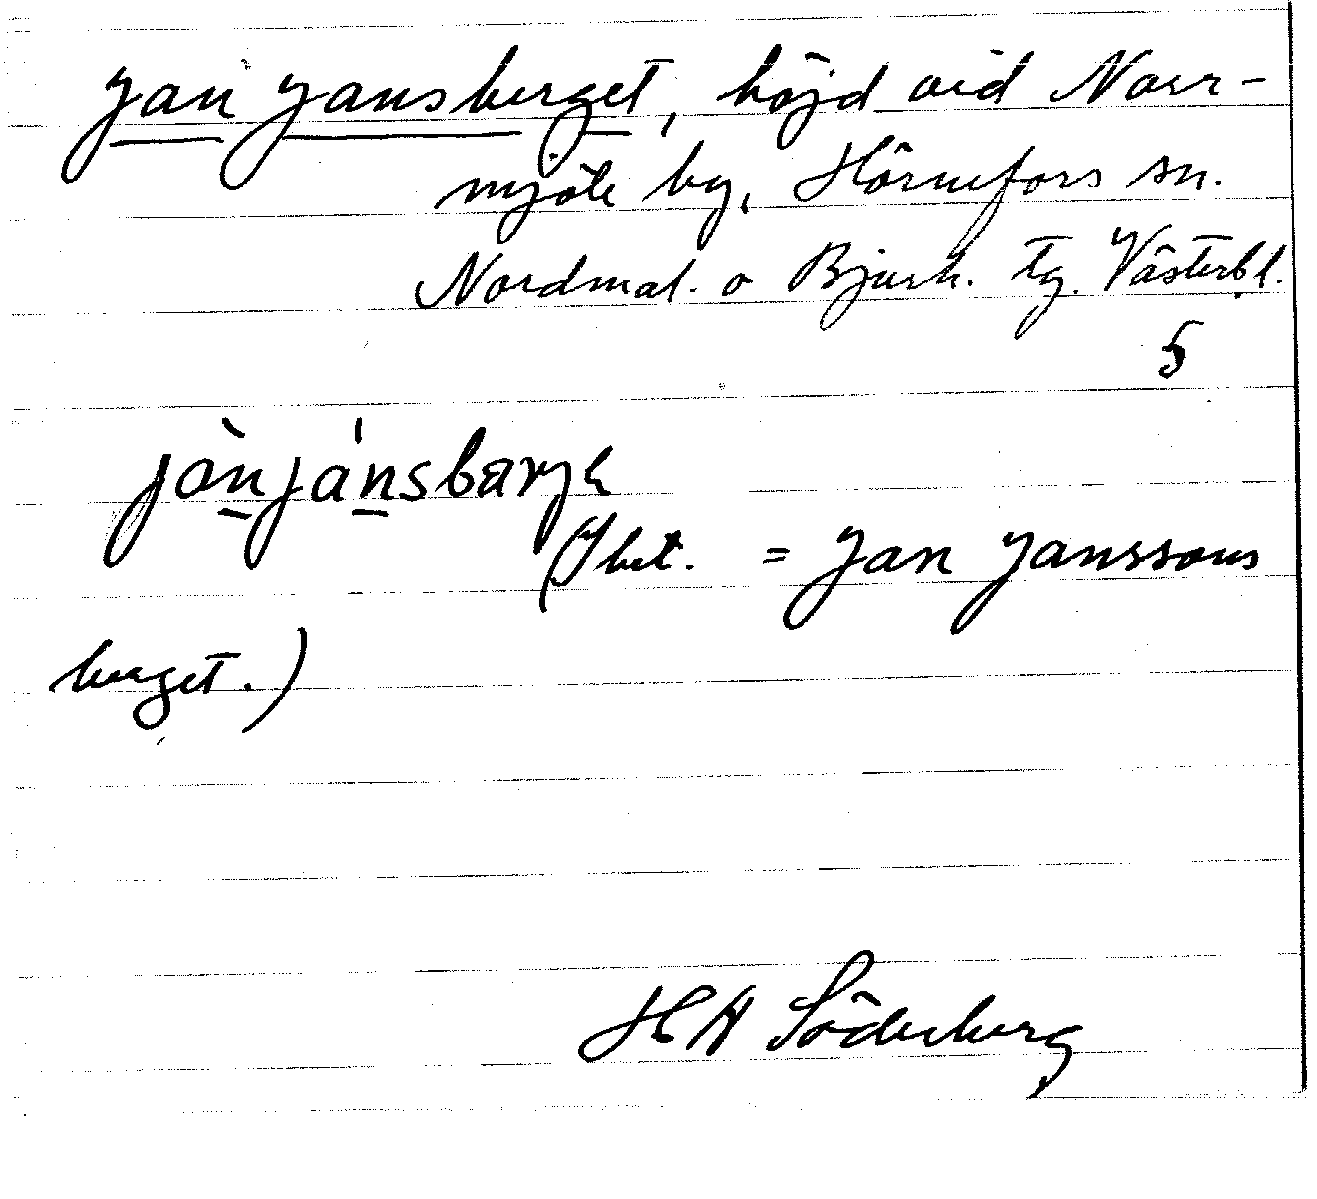 Jan Jansberget, höjd vid Norr-
mjöle by, Hörnefors sn.
Nordmal. o Bjurh. tg. Västerbl.
5
jànjánsbärjh
(J bet. = Jan Janssons
berget.)
H A Söderberg